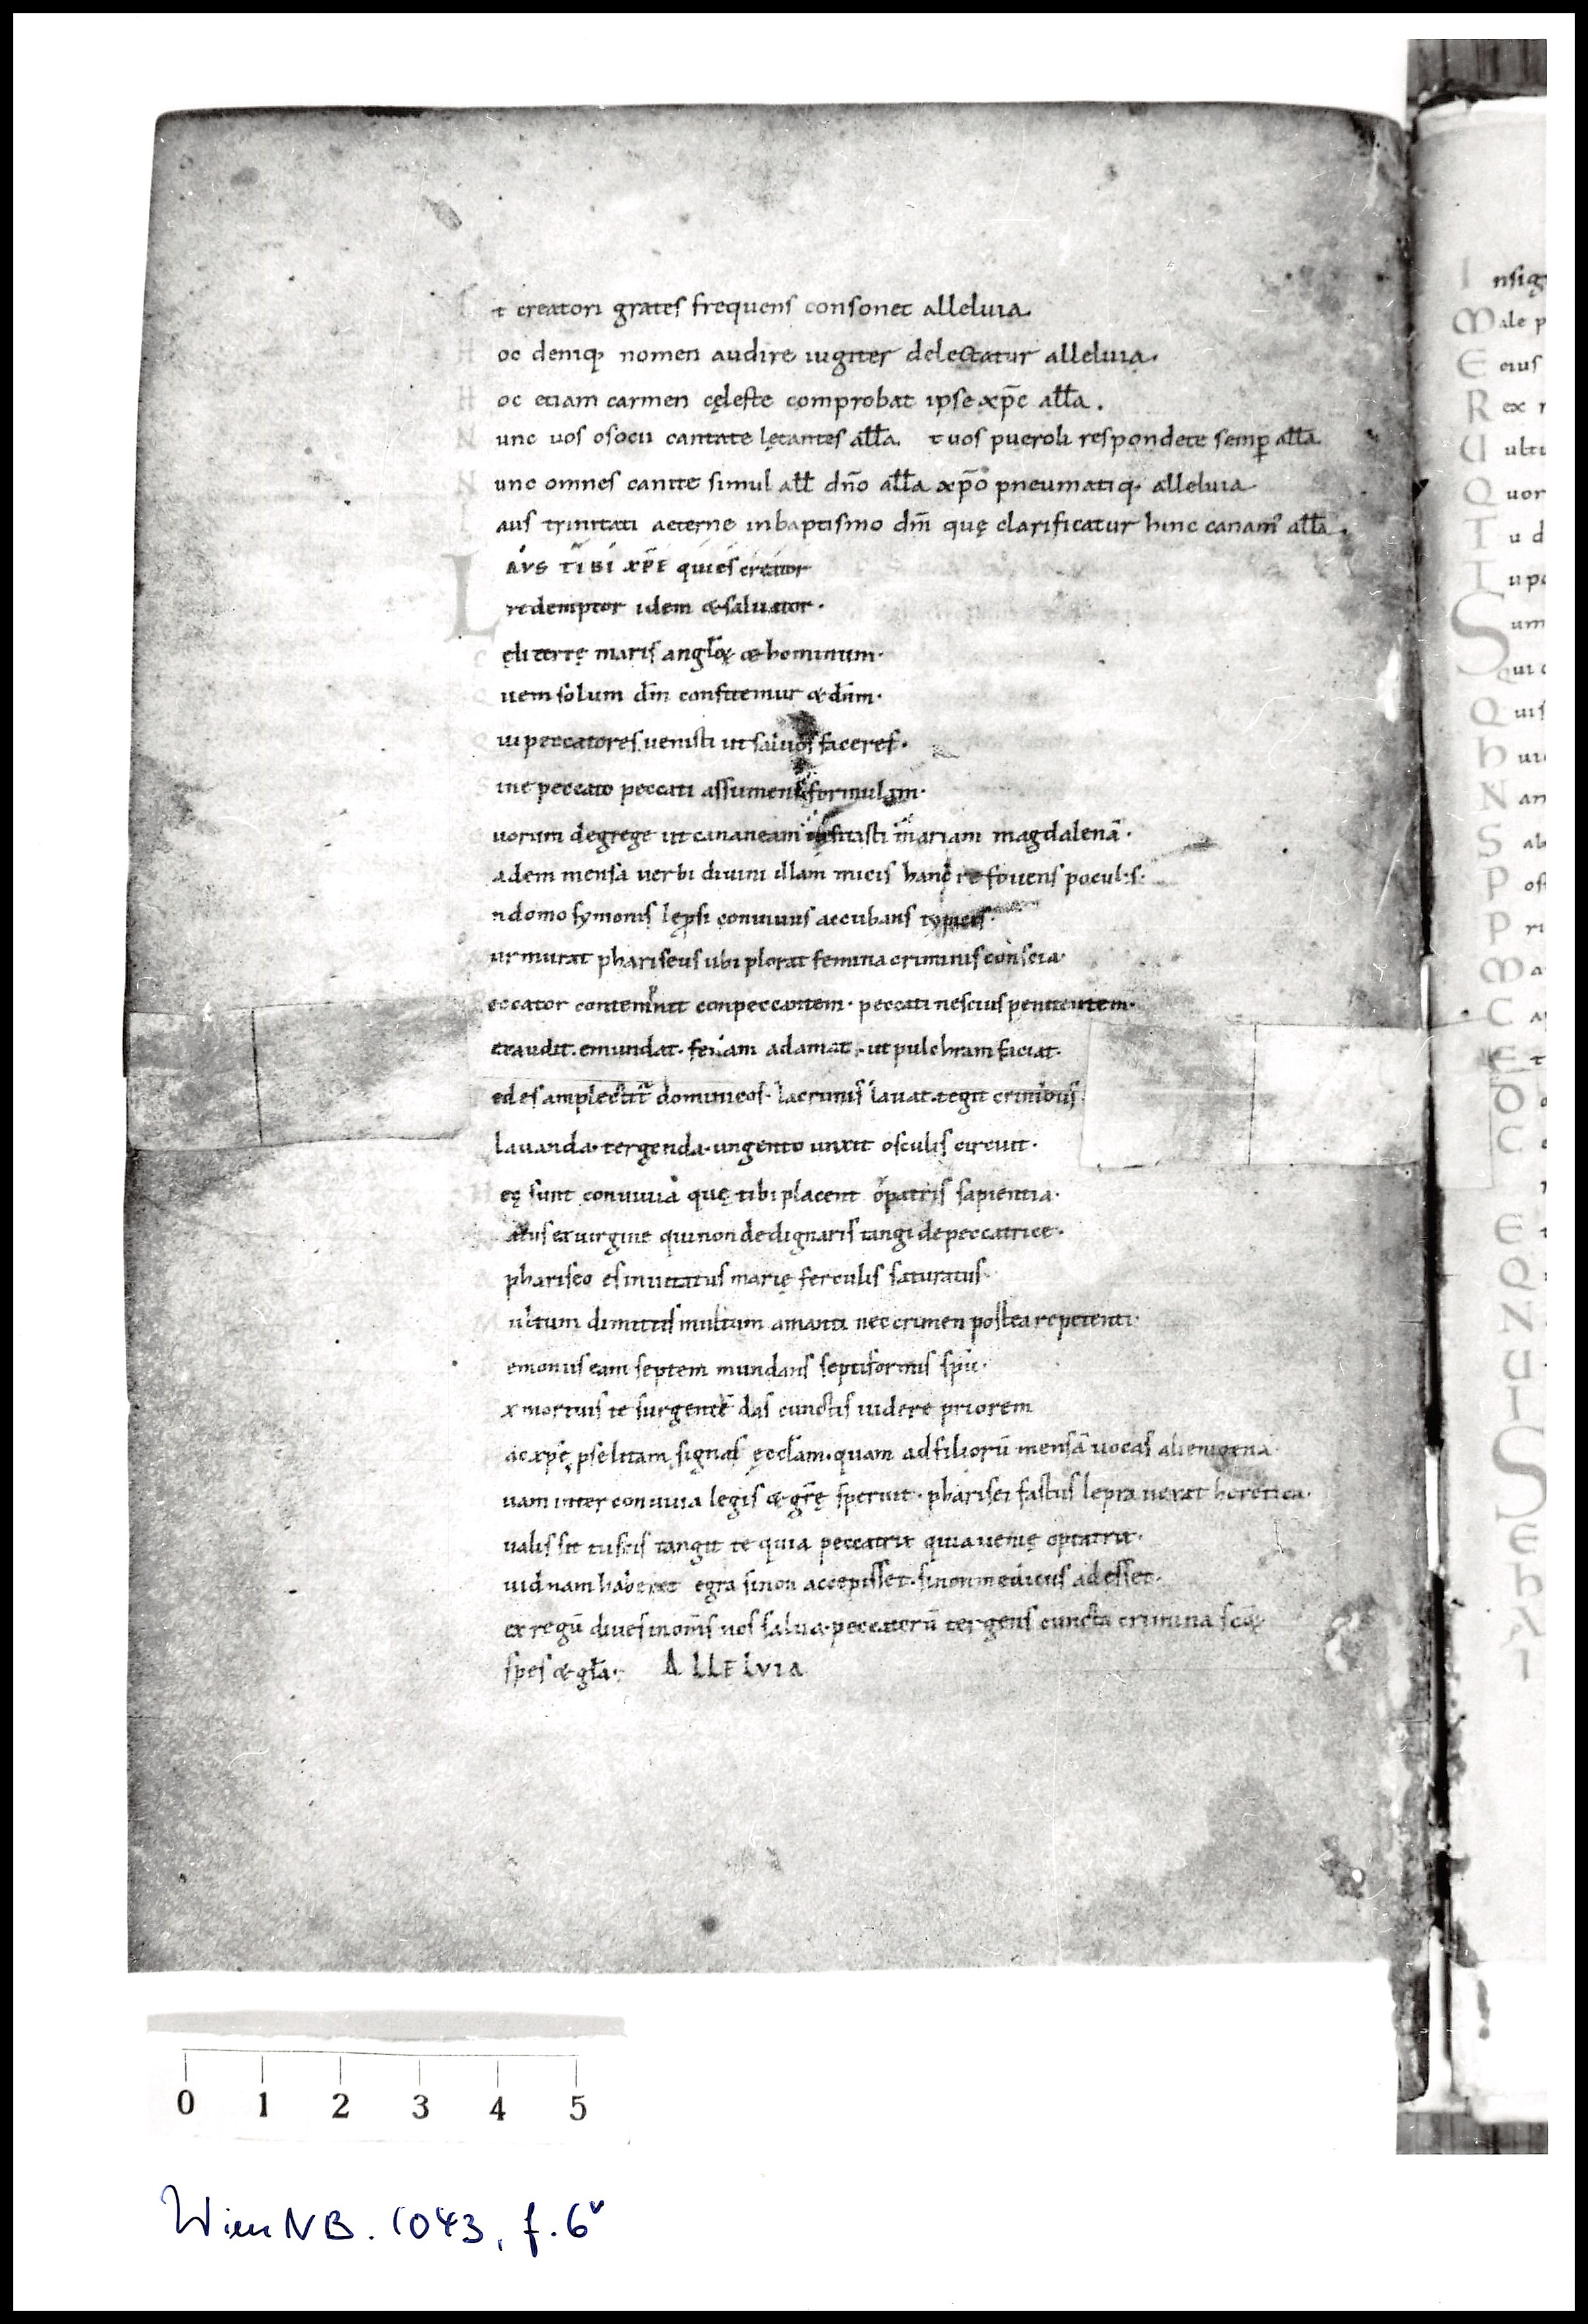 Et creatori grates frequens consonet alleluia
Hoc deniq; nomen audire iugiter delectatur alleluia.
Hoc etiam carmen cęleste comprobat ipse xp̄c all̄a.
Nunc uos osocii cantate lętantes all̄a. & uos pueroli respondete semp̄ all̄a.
Nunc omnes canite simul all̄ dn̄o all̄a xp̄o pneumatiq; alleluia
Laus trinitati aeterne inbaptismo dm̄ quę clarificatur hinc canam' all̄a.
LAVS TIBI XP̄E qui es creator
redemptor idem & saluator.
Cęli terrę maris angl̄oꝝ & hominum.
Quem solum dm̄ confitemur & dn̄m.
Qui peccatores uenisti ut saluos faceres.
Sine peccato peccati assumens formulam.
uorum degrege ut cananeam uisitasti mariam magdalenā.
adem mensa uerbi diuini illam micis hanc refouens poculis.
n domo symonis lepsi conuiuiis accubans typicis.
urmurat phariseus ubi plorat femina criminis conscia.
eccator contemnit conpeccantem. peccati nescius penitentem.
exaudit. emundat. fedam adamat. ut pulchram faciat.
edes amplectit̄ dominicos. lacrimis lauat. tegit crinibus
lauanda. tergenda. ungento unxit osculis circuit.
Hęę sunt conuiuia quę tibi placent o patris sapientia.
atus exuirgine qui non dedignaris tangi depeccatrice.
phariseo es inuitatus marię ferculis saturatus.
Multum dimittis multum amanti nec crimen postea repetenti.
emoniis eam septem mundans septiformis sp̄u.
x mortuis te surgentē das cunctis uidere priorem
ac xp̄e pselitam signas ęccl̄am. quam ad filiorū mensā uocas alienigena
uam inter conuiuia legis & gr̄ę spernit. pharisei fastus lepra uexat heretica.
ualis sit tu scis tangit te quia peccatrix quia uenię optatrix.
uid nam haberet egra sinon accepisset. si non medicus adesset.
ex regū diues inom̄s nos salua. peccatorū tergens cuncta crimina sc̄oꝝ
spes & gl̄a. ALLELVIA
Insig
Male p
Eius
Rex r
Uultu
Quor
Tu d
Tu pa
Sum
qui c
Quis
hui
Nan
Sab
Post
Pri
Ma
0 1 2 3 4 5
Wien NB. 1043, f. 6v